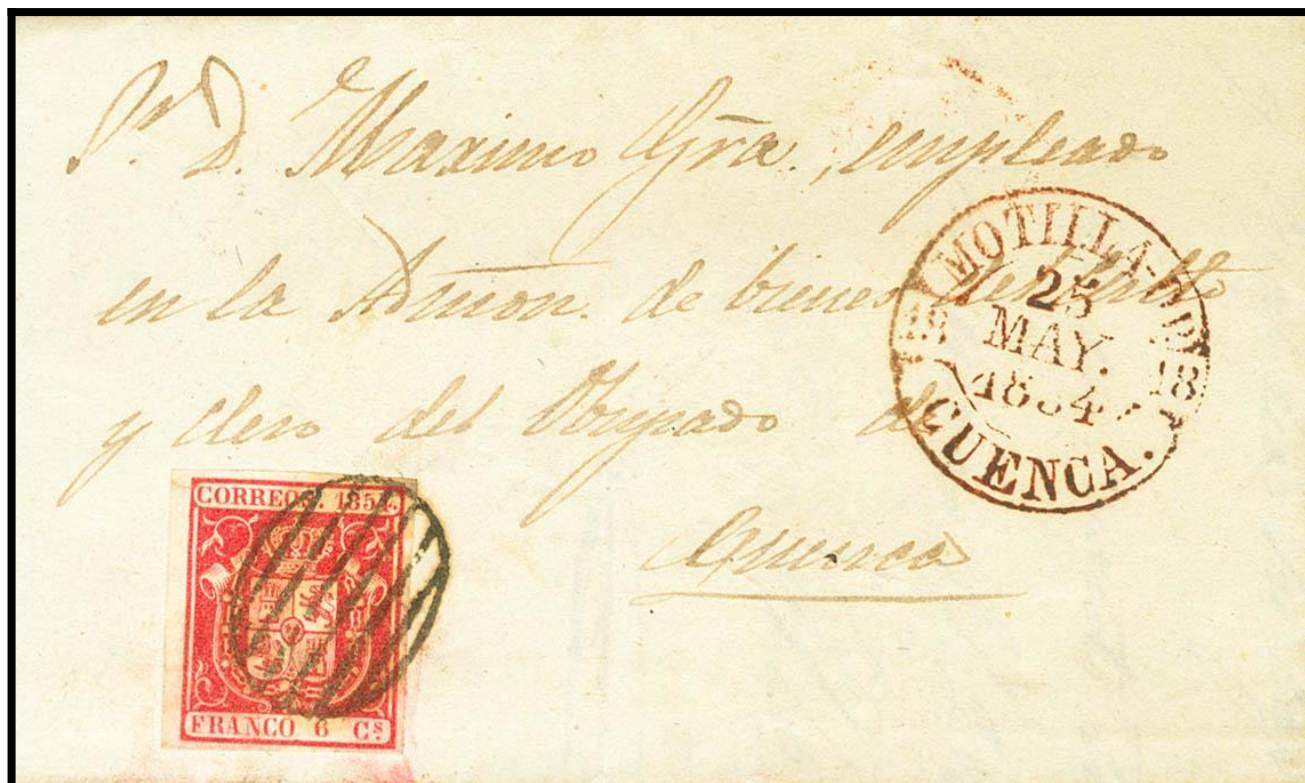 Sr. D. Maximo Gra., empleado
en la Admon. de bienes del culto
y clero del Obispado de
Cuenca
MOTILLA-DL
18 18
25
MAY.
1854
CUENCA.
CORREOS. 1854.
FRANCO 6 Cs.